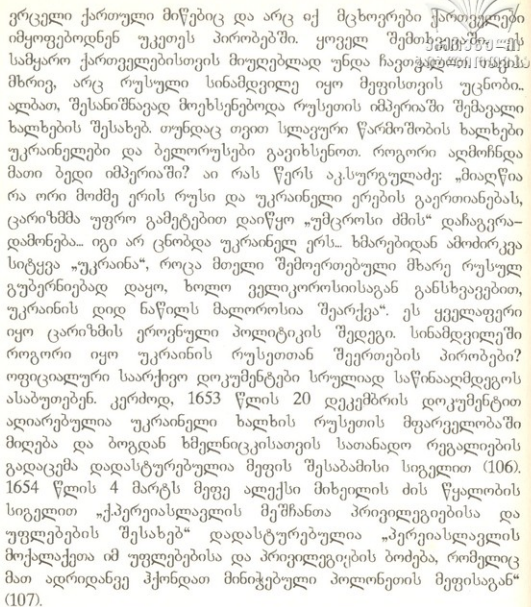 ვრცელი ქართული მიწებიც და არც იქ მცხოვრები ქართველები
იმყოფებოდნენ უკეთეს პირობებში. ყოველ შემთხვევაში, ეს
სამყარო ქართველებისთვის მიუღებლად უნდა ჩავთვალოთ. თავის
მხრივ, არც რუსული სინამდვილე იყო მეფისთვის უცნობი..
ალბათ, შესანიშნავად მოეხსენებოდა რუსეთის იმპერიაში შემავალი
ხალხების შესახებ. თუნდაც თვით სლავური წარმოშობის ხალხები
უკრაინელები და ბელორუსები გავიხსენოთ. როგორი აღმოჩნდა
მათი ბედი იმპერიაში? აი რას წერს აკ.სურგულაძე: „მიაღწია
რა ორი მოძმე ერის რუსი და უკრაინელი ერების გაერთიანებას,
ცარიზმმა უფრო გამეტებით დაიწყო „უმცროსი ძმის“ დაჩაგვრა-
დამონება... იგი არ ცნობდა უკრაინელ ერს... ხმარებიდან ამოძირკვა
სიტყვა „უკრაინა“, როცა მთელი შემოერთებული მხარე რუსულ
გუბერნიებად დაყო, ხოლო ველიკოროსიისაგან განსხვავებით,
უკრაინის დიდ ნაწილს მალოროსია შეარქვა“. ეს ყველაფერი
იყო ცარიზმის ეროვნული პოლიტიკის შედეგი. სინამდვილეში
როგორი იყო უკრაინის რუსეთთან შეერთების პირობები?
ოფიციალური საარქივო დოკუმენტები სრულიად საწინააღმდეგოს
ასაბუთებენ. კერძოდ, 1653 წლის 20 დეკემბრის დოკუმენტით
აღიარებულია უკრაინელი ხალხის რუსეთის მფარველობაში
მიღება და ბოგდან ხმელნიცკისათვის სათანადო რეგალიების
გადაცემა დადასტურებულია მეფის შესაბამისი სიგელით (106).
1654 წლის 4 მარტს მეფე ალექსი მიხეილის ძის წყალობის
სიგელით „ქ.პერეიასლავლის მეშჩანთა პრივილეგიებისა და
უფლებების შესახებ“ დადასტურებულია „პერეიასლავლის
მოქალაქეთა იმ უფლებებისა და პრივილეგიების ბოძება, რომელიც
მათ ადრიდანვე ჰქონდათ მინიჭებული პოლონეთის მეფისაგან“
(107).